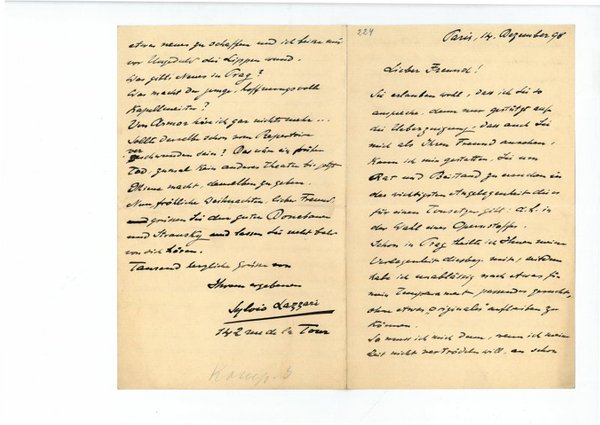 224
Paris, 14. Dezember 98
Lieber Freund!
Sie erlauben wohl, dass ich Sie so
anspreche, denn nur gestützt auf
die Ueberzeugung, dass auch Sie
mich als Ihren Freund ansehen,
kann ich mir gestatten, Sie um
Rat und Beistand zu
der wichtigsten Angelegenheit die es
für einen Tonsetzer gibt: d.h. in
der Wahl eines Opernstoffes.
Schon in Prag theilte ich Ihnen meine
Verlegenheit diesbez. mit; seitdem
habe ich unablässig nach etwas für
mein Temperament passendes gesucht,
ohne etwas originales auftreiben zu
können.
So muss ich mich denn, wenn ich meine
Zeit nicht vertrödeln will, an schon
etwas neues zu schaffen und ich beisse mir
vor Ungeduld die Lippen wund.
Was gibts Neues in Prag?
Was macht der junge, hoffnungsvolle
Kapellmeister?
Von Armor höre ich gar nichts mehr...
Sollte derselbe schon vom Repertoire
verschwunden sein? Das wäre ein früher
Tod, zumal kein anderes Theater bis jetzt
Miene macht, denselben zu geben.
Nun, fröhliche Weihnachten, lieber Freund,
und grüssen Sie den guten
und Stransky und lassen Sie recht bald
von sich hören.
Tausend herzliche Grüsse von
Ihrem ergebenen
Sylvio Lazzari
142 rue de la Tour